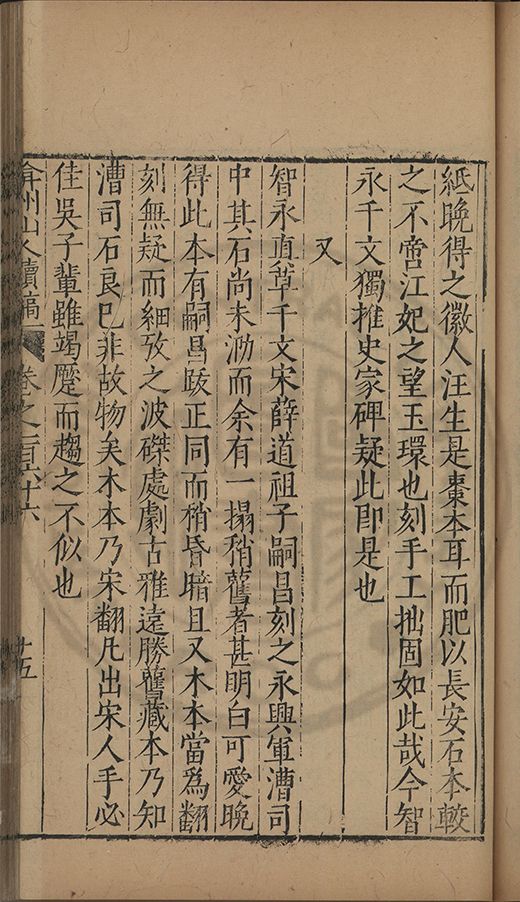 紙晚得之徽人汪生是棗本耳而肥以長安石本較
之不啻江妃之望玉環也刻手工拙固如此哉今智
永千文獨推史家碑疑此即是也
又
智永真草千文宋薛道祖子嗣昌刻之永興軍漕司
中其石尚未泐而余有一搨稍舊者甚明白可愛晚
得此本有嗣昌跋正同而稍昏暗且又木本當爲翻
刻無疑而細攷之波磔處劇古雅遠勝舊藏本乃知
漕司石良已非故物矣木本乃宋翻凡出宋人手必
佳吳子輩雖竭蹷而趨之不似也
弇州山人續稿 卷之一百六十六 十五